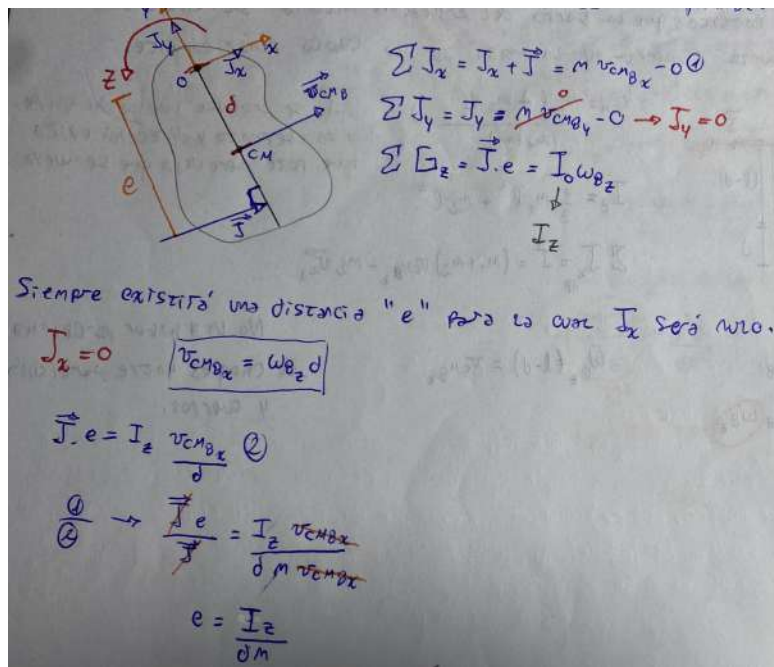 Y
J_y
x
Z
O
J_x
v_CM_B
d
CM
e
J⃗
Σ J_x = J_x + J⃗ = m v_CM_Bx - 0 ①
Σ J_y = J_y = m v_CM_By - 0 → J_y = 0
0
Σ G_z = J⃗ . e = I_0 ω_Bz
↓
I_z
Siempre existirá una distancia "e" para la cual J_x será nulo.
J_x = 0
v_CM_Bx = ω_Bz d
J⃗ . e = I_z v_CM_Bx / d ②
①/② → J⃗ e / J⃗ = I_z v_CM_Bx / d m v_CM_Bx
e = I_z / d m